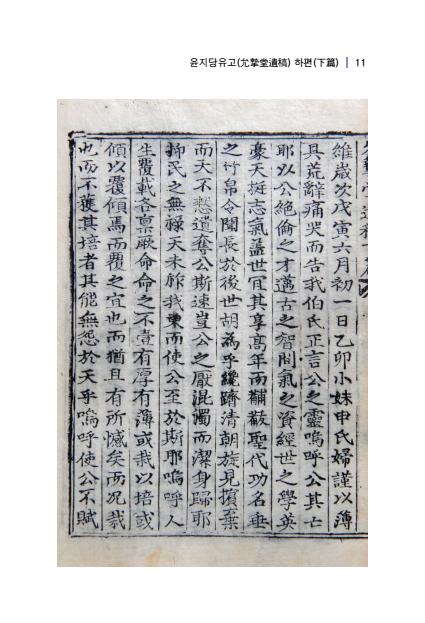 윤지당유고(允摯堂遺稿) 하편(下篇) | 11
維歲次戊寅六月初一日乙卯小妹申氏婦謹以薄
具荒辭痛哭而告我伯氏正言公之靈嗚呼公其亡
耶以公絶倫之才邁古之智間氣之資經世之學英
豪天挺志氣蓋世宜其享高年而黼黻聖代功名垂
之竹帛令聞長於後世胡為乎纔躋清朝旋見擯棄
而天不慭遺奪公斯速豈公之厭混濁而潔身歸耶
抑民之無祿天未祚我東而使公至於斯耶嗚呼人
生覆載各禀厥命命之不壹有厚有薄或栽以培或
傾以覆傾焉而覆之宜也而猶且有所憾矣而况栽
也而不獲其培者其能無怨於天乎嗚呼使公不賦